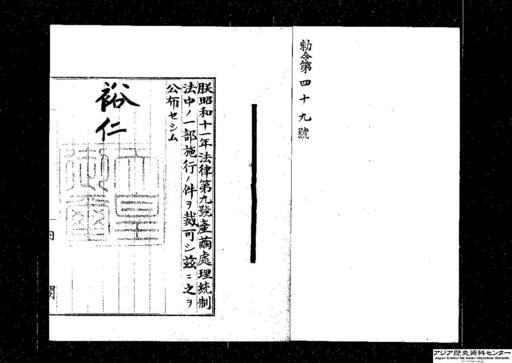 勅令第四十九號
朕昭和十一年法律第九號產繭處理統制
法中ノ一部施行ノ件ヲ裁可シ茲ニ之ヲ
公布セシム
裕仁
天皇
御璽
内閣
アジア歴史資料センター
Japan Center for Asian Historical Records